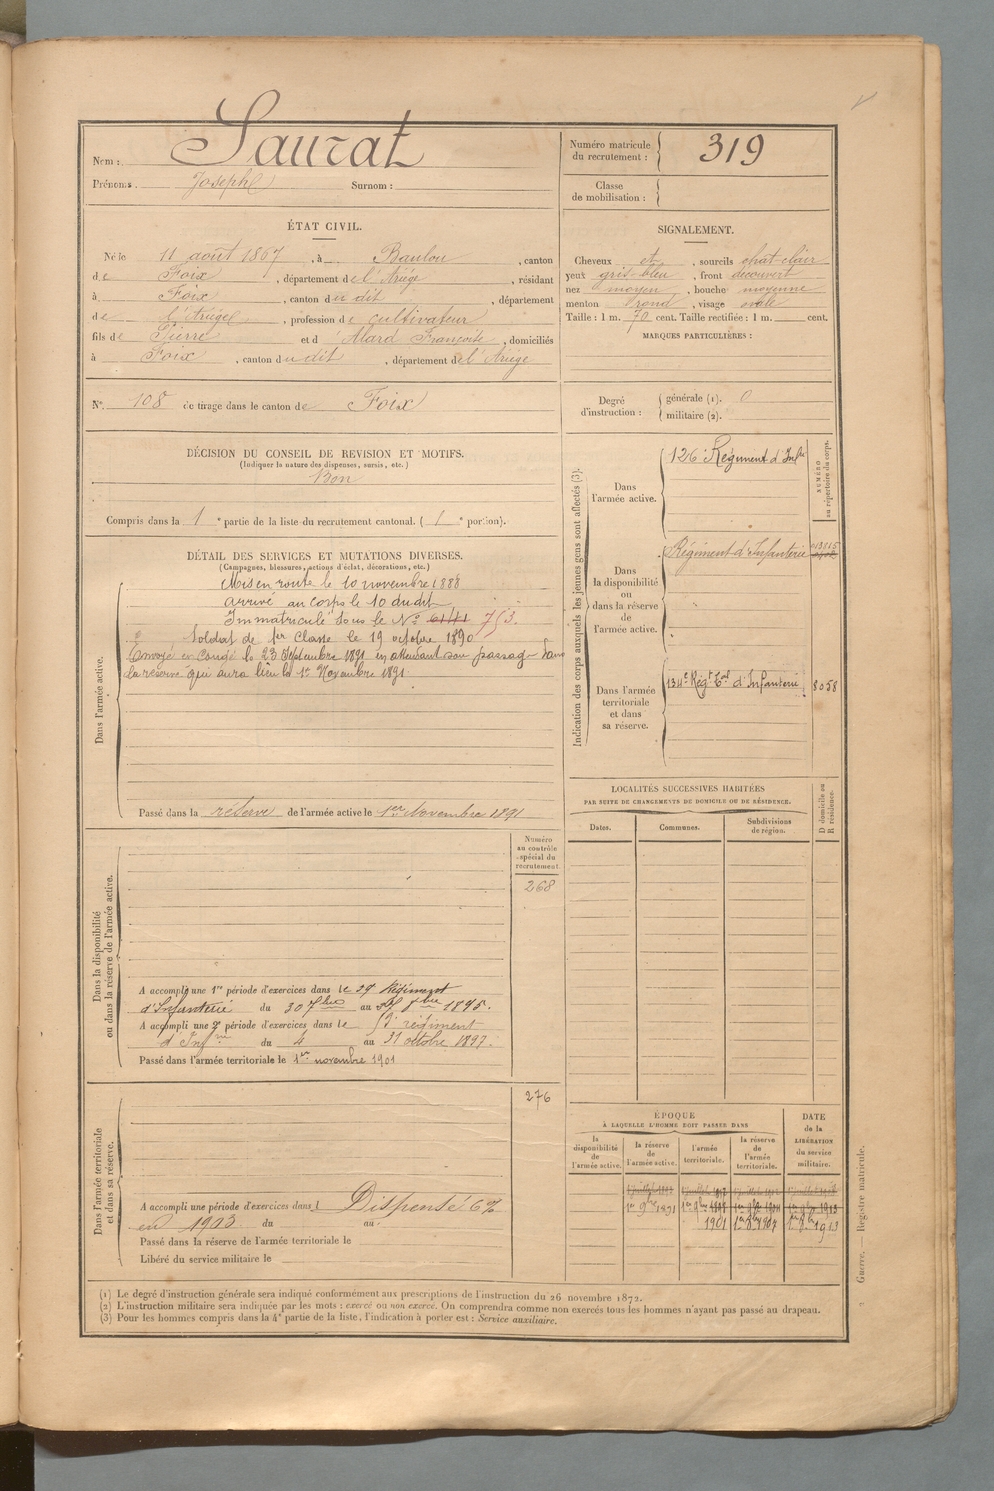 Nom : Saurat
Prénoms. Joseph Surnom :
Numéro matricule du recrutement : 319
Classe de mobilisation :
ÉTAT CIVIL.
Né le 11 août 1867, à Baulou, canton
de Foix, département de l'Ariège, résidant
à Foix, canton du dit, département
de l'Ariège, profession de cultivateur
fils de Pierre et d'Alard Françoise, domiciliés
à Foix, canton du dit, département de l'Ariège
SIGNALEMENT.
Cheveux et, sourcils chat-clair
yeux gris-bleu, front découvert
nez moyen, bouche moyenne
menton rond, visage ovale
Taille : 1 m. 70 cent. Taille rectifiée : 1 m. cent.
MARQUES PARTICULIÈRES :
N° 108 de tirage dans le canton de Foix
Degré d'instruction : générale (1). 0
militaire (2).
DÉCISION DU CONSEIL DE REVISION ET MOTIFS.
(Indiquer la nature des dispenses, sursis, etc.)
Bon
Compris dans la 1e partie de la liste du recrutement cantonal. (1e portion).
DÉTAIL DES SERVICES ET MUTATIONS DIVERSES.
(Campagnes, blessures, actions d'éclat, décorations, etc.)
Dans l'armée active.
Mis en route le 10 novembre 1888
arrivé au corps le 10 du dit
Immatriculé sous le N° 6141 753.
Soldat de 1er classe le 19 octobre 1890
Envoyé en congé le 23 Septembre 1891 en attendant son passage dans
la réserve qui aura lieu le 1er Novembre 1891.
Passé dans la réserve de l'armée active le 1er Novembre 1891
Indication des corps auxquels les jeunes gens sont affectés (3).
NUMÉRO au répertoire du corps.
Dans l'armée active.
126e Régiment d'Infie
Dans la disponibilité ou dans la réserve de l'armée active.
Régiment d'Infanterie
Dans l'armée territoriale et dans sa réserve.
134e Régt Tal d'Infanterie 8058
LOCALITÉS SUCCESSIVES HABITÉES
PAR SUITE DE CHANGEMENTS DE DOMICILE OU DE RÉSIDENCE.
D domicile ou R résidence.
Dates. Communes. Subdivisions de région.
Dans la disponibilité ou dans la réserve de l'armée active.
Numéro au contrôle spécial du recrutement
268
A accompli une 1re période d'exercices dans le 59e Régiment
d'Infanterie du 30 7bre au 27 8bre 1895.
A accompli une 2e période d'exercices dans le régiment
d'Infrie du 4 au 31 octobre 1897.
Passé dans l'armée territoriale le 1er novembre 1901
Dans l'armée territoriale et dans sa réserve.
276
A accompli une période d'exercices dans l Dispensé 6%
en 1903 du au
Passé dans la réserve de l'armée territoriale le
Libéré du service militaire le
ÉPOQUE
À LAQUELLE L'HOMME DOIT PASSER DANS
DATE de la LIBÉRATION du service militaire.
la disponibilité de l'armée active. la réserve de l'armée active. l'armée territoriale. la réserve de l'armée territoriale.
1er 9bre 1891 1er 9bre 1897 1er 9bre 1904 1er 9bre 1913
1901 1er 8bre 1907 1er 8bre 1913
(1) Le degré d'instruction générale sera indiqué conformément aux prescriptions de l'instruction du 26 novembre 1872.
(2) L'instruction militaire sera indiquée par les mots : exercé ou non exercé. On comprendra comme non exercés tous les hommes n'ayant pas passé au drapeau.
(3) Pour les hommes compris dans la 4e partie de la liste, l'indication à porter est : Service auxiliaire.
Guerre. — Registre matricule.